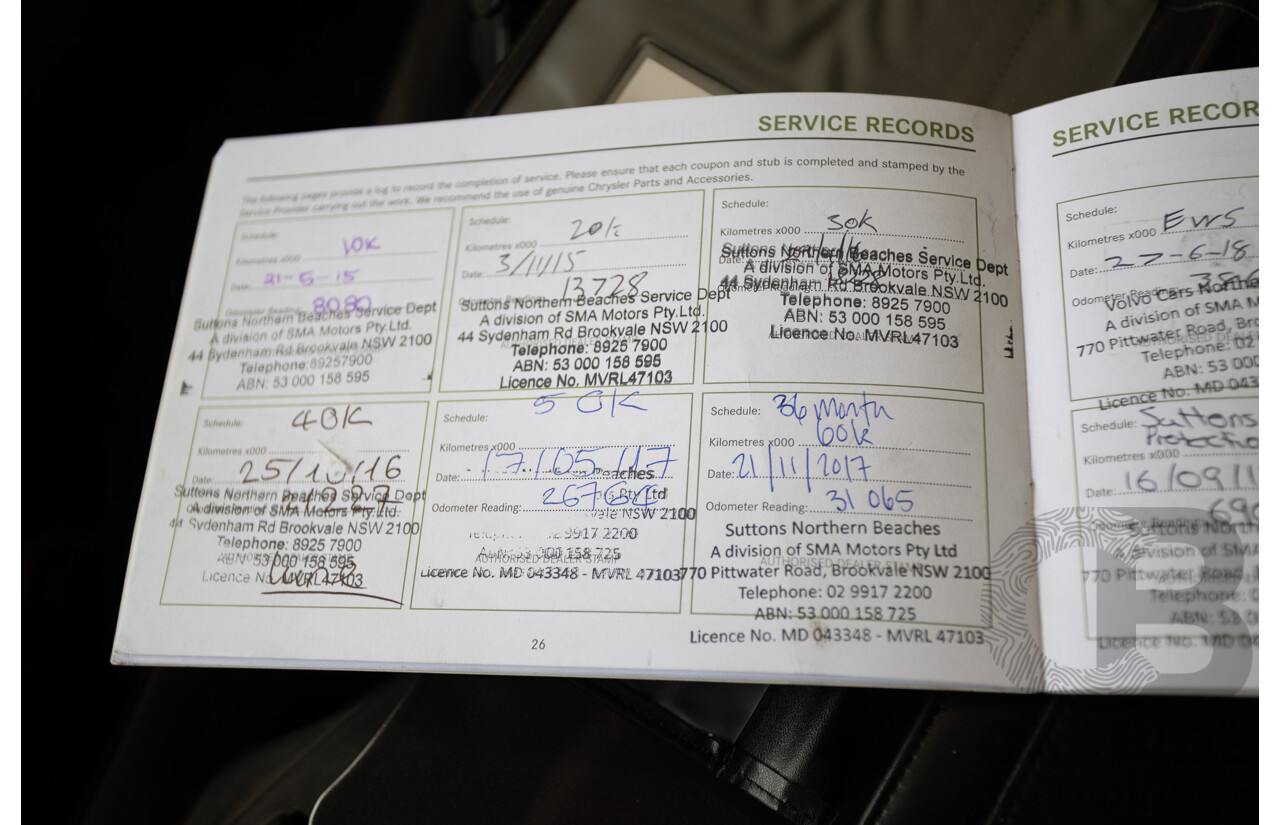 SERVICE RECORDS
The following pages provide a log to record the completion of service. Please ensure that each coupon and stub is completed and stamped by the
Service Provider carrying out the work. We recommend the use of genuine Chrysler Parts and Accessories.
Schedule:
10K
Kilometres x000
Date: 21-5-15
Odometer Reading: 8080
Suttons Northern Beaches Service Dept
A division of SMA Motors Pty.Ltd.
44 Sydenham Rd Brookvale NSW 2100
Telephone: 89257900
ABN: 53 000 158 595
Schedule:
20k
Kilometres x000
Date: 3/11/15
13728
Suttons Northern Beaches Service Dept
A division of SMA Motors Pty.Ltd.
44 Sydenham Rd Brookvale NSW 2100
Telephone: 8925 7900
ABN: 53 000 158 595
Licence No. MVRL47103
Schedule:
30K
Kilometres x000
Date:
Suttons Northern Beaches Service Dept
A division of SMA Motors Pty.Ltd.
44 Sydenham Rd Brookvale NSW 2100
Telephone: 8925 7900
ABN: 53 000 158 595
Licence No. MVRL47103
Schedule:
40K
Kilometres x000
Date: 25/10/16
Suttons Northern Beaches Service Dept
A division of SMA Motors Pty.Ltd.
44 Sydenham Rd Brookvale NSW 2100
Telephone: 8925 7900
ABN: 53 000 158 595
Licence No. MVRL47103
Schedule:
50K
Kilometres x000
Date: 17/05/17
Beaches
Odometer Reading: 26764
Pty Ltd
vale NSW 2100
2 9917 2200
ABN: 53 000 158 725
AUTHORISED DEALER STAMP
Licence No. MD 043348 - MVRL 47103
Schedule: 36 Month
60k
Kilometres x000
Date: 21/11/2017
Odometer Reading: 31 065
Suttons Northern Beaches
A division of SMA Motors Pty Ltd
AUTHORISED DEALER STAMP
770 Pittwater Road, Brookvale NSW 2100
Telephone: 02 9917 2200
ABN: 53 000 158 725
Licence No. MD 043348 - MVRL 47103
26
SERVICE RECOR
Schedule:
EWS
Kilometres x000
Date: 27-6-18
Odometer Reading:
Volvo Cars Northe
A division of SMA M
770 Pittwater Road, Bro
Telephone: 02
ABN: 53
Licence No. MD 043
Schedule: Suttons
Protectio
Kilometres x000
Date: 16/09/1
Odometer Reading: 690
Suttons North
A division of SMA
770 Pittwater Road,
Telephone: 0
ABN: 53 0
Licence No. MD 0
B